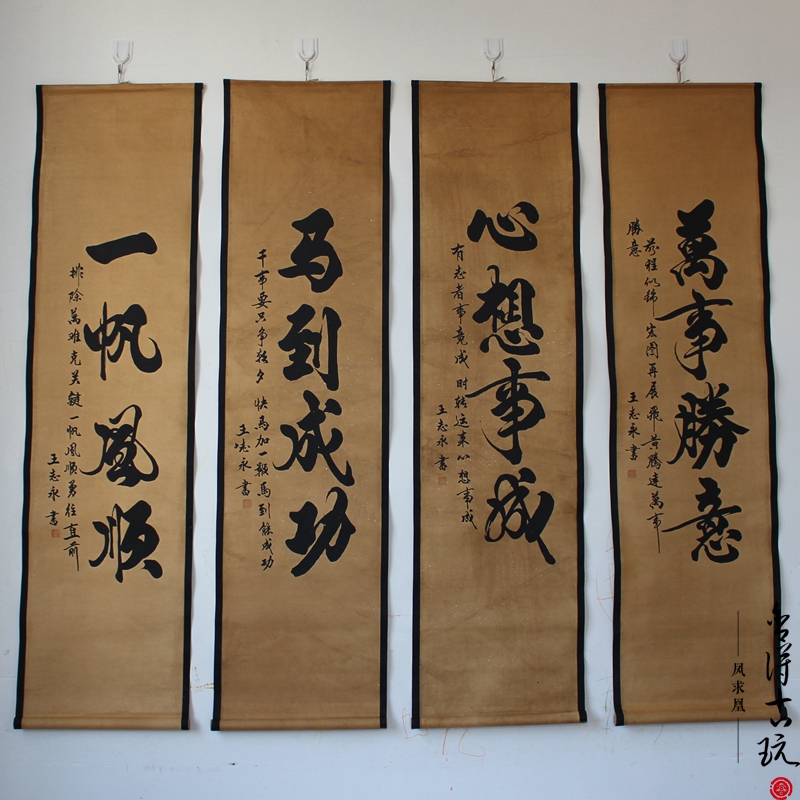 一帆風顺
排除萬难克关键一帆風顺勇往直前
王志永書
马到成功
千事要只争朝夕 快馬加一鞭馬到能成功
王志永書
心想事成
有志者事竟成 时转运来心想事成
王志永書
萬事勝意
前程似锦 宏图再展 飛黄腾達萬事
勝意
王志永書
凤求凰
得古玩